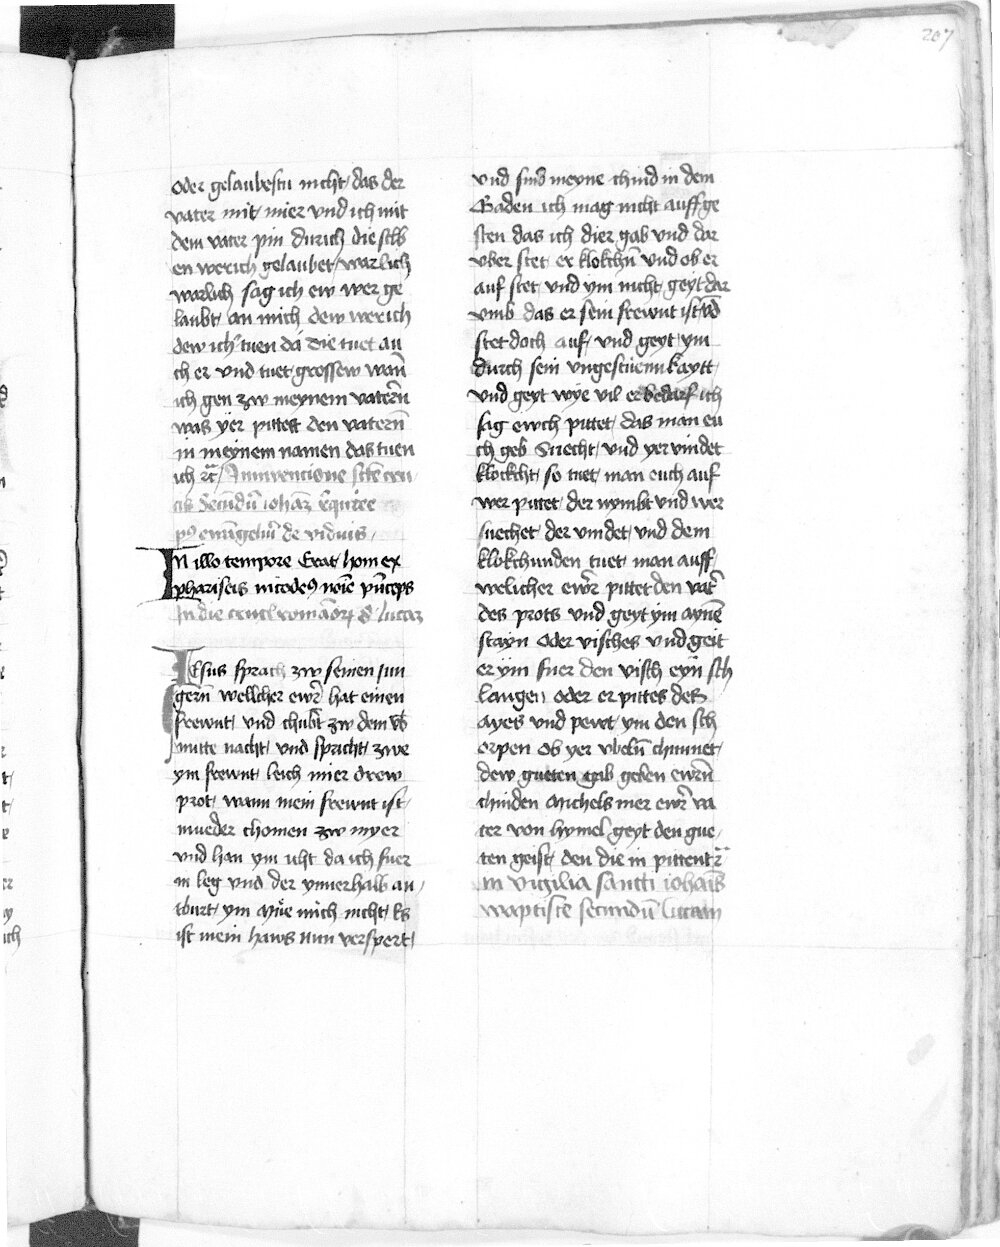 207
oder gelaubestu nicht das der
vater mit mier vnd ich mit
dem vater pin durich die selb
en werich gelaubet warlich
warlich sag ich ew wer ge
laubt an mich dew werich
dew ich tuen da die tuet au
ch er vnd tuet grossew wan̄
ich gen zw meynem vatern̄
was yer pittet den vatern̄
in meynem namen das tuen
ich ꝛc̄ In invencione scē cru
cis Secundū iohan̄
ewāgeliū de viduis
In illo tempore Erat homo ex
phariseis nicodeꝯ noīe pn̄ceps
In die lucas
Iesus sprach zw seinen iun
gern̄ wellcher ewr̄ hat einen
frewnt vnd chubt zw dem vb̄
mitte nacht vnd spricht zwe
ym frewnt leich mier drew
prot wann mein frewnt ist
mueder chomen zw myer
vnd han ym nht da ich fuer
in leg vnd der ynnerhalb an
tburt ym Mue mich nicht Es
ist mein haws nun verspert
vnd sind meyne chind in dem
Gaden ich mag nicht auff ge
sten das ich dier gab vnd dar
vber stet er klokchn̄ vnd ob er
auf stet vnd ym nicht geyt dar
vmb das er sein frewnt ist vō
stet doch auf vnd geyt ym
durch sein vngestuemkaytt
vnd geyt wye vil er bedarf ich
sag ewch pittet das man eu
ch geb Suecht vnd yer vindet
klockcht so tuet man euch auf
wer pittet der nymbt vnd wer
suechet der vindet vnd dem
klokchunden tuet man auff
welicher ewr̄ pittet den vat̄
des prots vnd geyt ym aynē
stayn oder visches vnd geit
er ym fuer den visch eyn̄ sch
langen oder er pittes des
ayes vnd pewt ym den sch
orpen ob yer vbeln̄ chunnet
dew gueten gab geben ewrn̄
chinden Michels mer ewr̄ va
ter von hymel geyt den gue
ten geist den die in pittent ꝛc̄
In vigilia sancti iohan̄is
waptiste secundū lucam